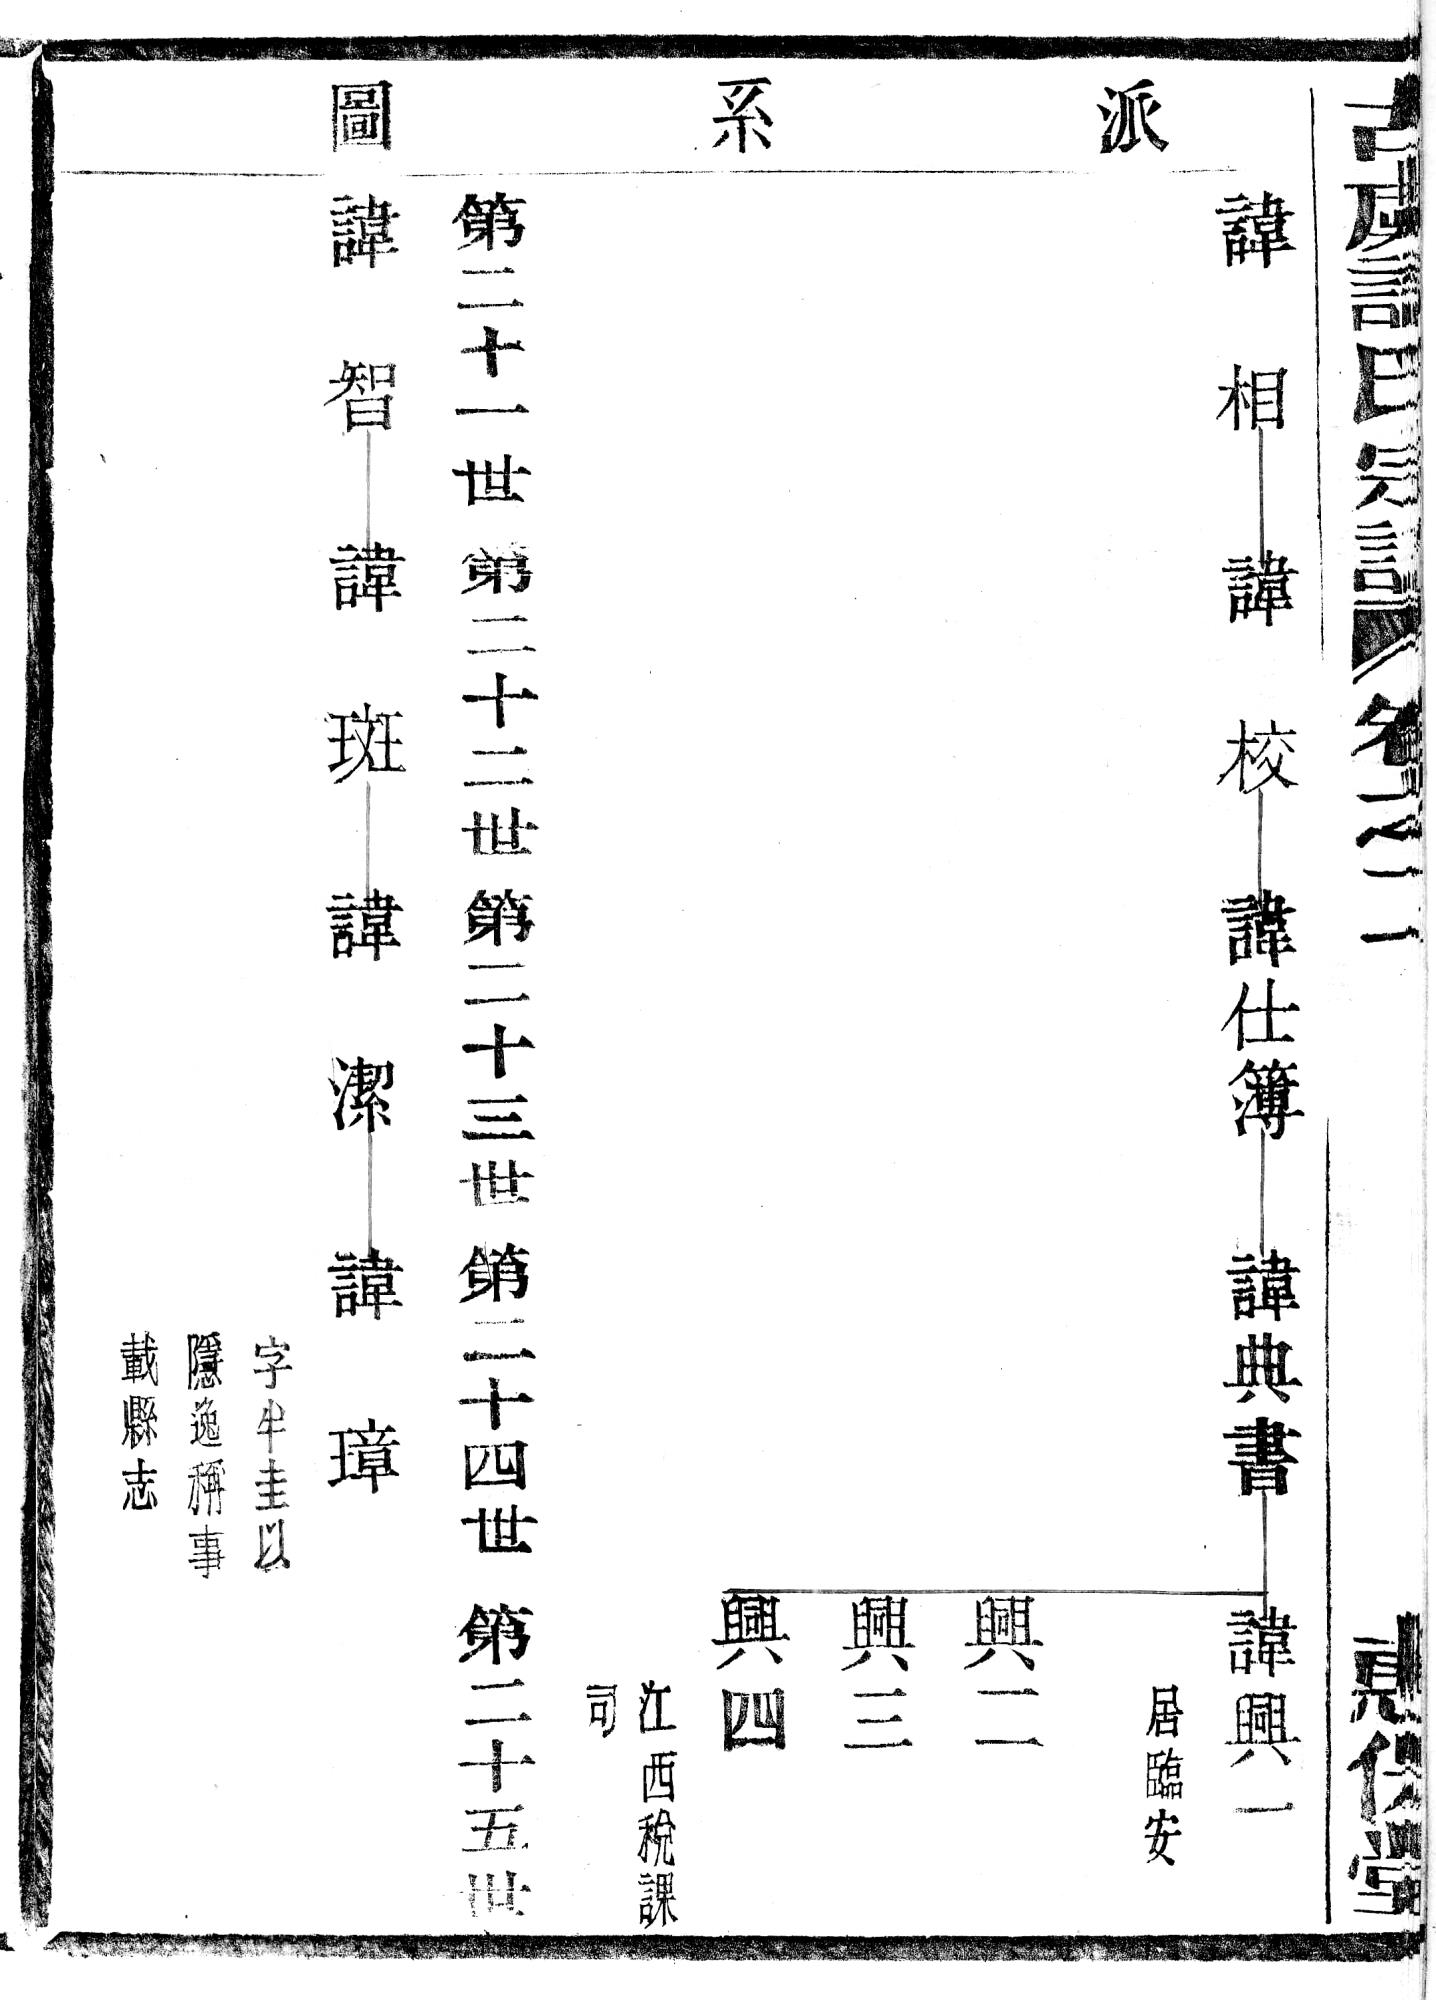 古虞謝氏宗譜 卷之二一
派系圖
諱相 諱校 諱仕簿 諱典書 諱興一
居臨安
興二
興三
興四
江西稅課
司
第二十一世 第二十二世 第二十三世 第二十四世 第二十五世
諱智 諱斑 諱潔 諱璋
字半圭以
隱逸稱事
載縣志